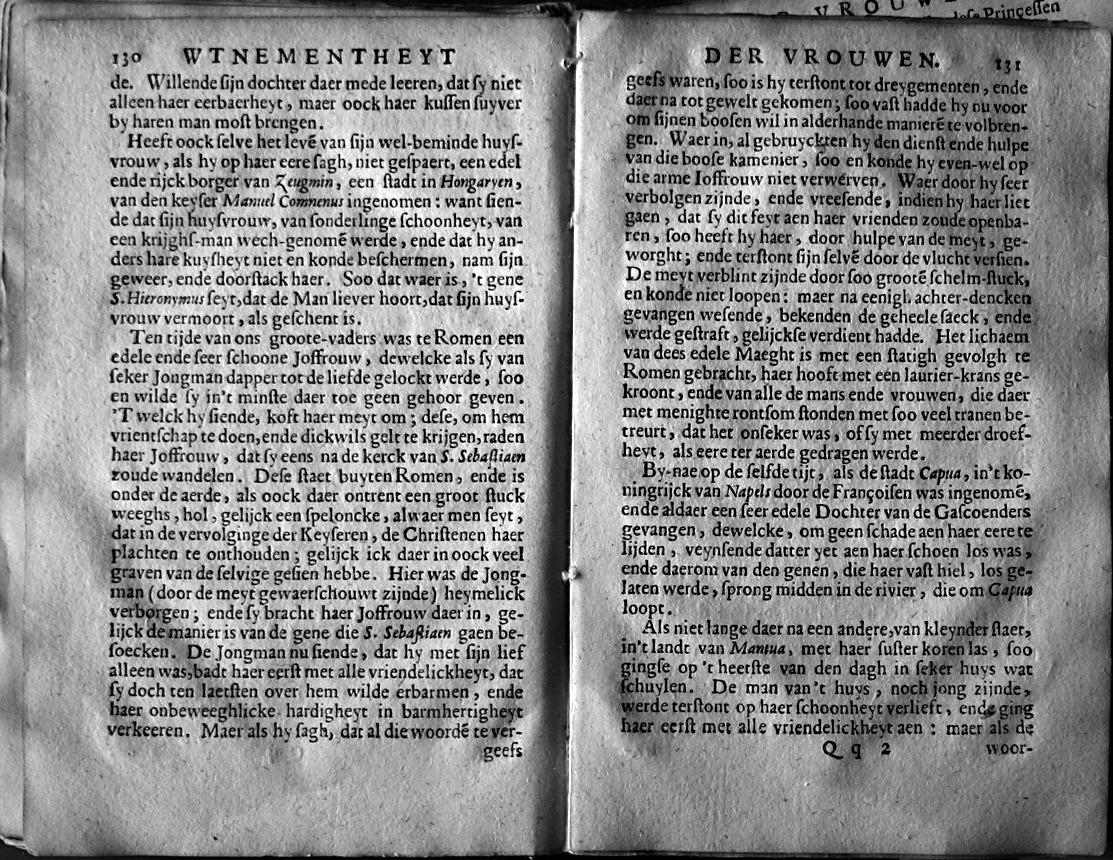 V R O U W
dese Princessen
130 WTNEMENTHEYT
de. Willende sijn dochter daer mede leeren, dat sy niet
alleen haer eerbaerheyt, maer oock haer kussen suyver
by haren man most brengen.
Heeft oock selve het levē van sijn wel-beminde huys-
vrouw, als hy op haer eere sagh, niet gespaert, een edel
ende rijck borger van Zeugmin, een stadt in Hongaryen,
van den keyser Manuel Comnenus ingenomen: want sien-
de dat sijn huysvrouw, van sonderlinge schoonheyt, van
een krijghs-man wech-genomē werde, ende dat hy an-
ders hare kuysheyt niet en konde beschermen, nam sijn
geweer, ende doorstack haer. Soo dat waer is, 't gene
S. Hieronymus seyt, dat de Man liever hoort, dat sijn huys-
vrouw vermoort, als geschent is.
Ten tijde van ons groote-vaders was te Romen een
edele ende seer schoone Joffrouw, dewelcke als sy van
seker Jongman dapper tot de liefde gelockt werde, soo
en wilde sy in't minste daer toe geen gehoor geven.
'T welck hy siende, koft haer meyt om; dese, om hem
vrientschap te doen, ende dickwils gelt te krijgen, raden
haer Joffrouw, dat sy eens na de kerck van S. Sebastiaen
zoude wandelen. Dese staet buyten Romen, ende is
onder de aerde, als oock daer ontrent een groot stuck
weeghs, hol, gelijck een speloncke, alwaer men seyt,
dat in de vervolginge der Keyseren, de Christenen haer
plachten te onthouden; gelijck ick daer in oock veel
graven van de selvige gesien hebbe. Hier was de Jong-
man (door de meyt gewaerschouwt zijnde) heymelick
verborgen; ende sy bracht haer Joffrouw daer in, ge-
lijck de manier is van de gene die S. Sebastiaen gaen be-
soecken. De Jongman nu siende, dat hy met sijn lief
alleen was, badt haer eerst met alle vriendelickheyt, dat
sy doch ten laetsten over hem wilde erbarmen, ende
haer onbeweeghlicke hardigheyt in barmhertigheyt
verkeeren. Maer als hy sagh, dat al die woordē te ver-
geefs
DER VROUWEN. 131
geefs waren, soo is hy terstont tot dreygementen, ende
daer na tot gewelt gekomen; soo vast hadde hy nu voor
om sijnen boosen wil in alderhande manierē te volbren-
gen. Waer in, al gebruyckten hy den dienst ende hulpe
van die boose kamenier, soo en konde hy even-wel op
die arme Ioffrouw niet verwerven. Waer door hy seer
verbolgen zijnde, ende vreesende, indien hy haer liet
gaen, dat sy dit feyt aen haer vrienden zoude openba-
ren, soo heeft hy haer, door hulpe van de meyt, ge-
worght; ende terstont sijn selvē door de vlucht versien.
De meyt verblint zijnde door soo grootē schelm-stuck,
en konde niet loopen: maer na eenigh achter-dencken
gevangen wesende, bekenden de geheele saeck, ende
werde gestraft, gelijckse verdient hadde. Het lichaem
van dees edele Maeght is met een statigh gevolgh te
Romen gebracht, haer hooft met een laurier-krans ge-
kroont, ende van alle de mans ende vrouwen, die daer
met menighte rontsom stonden met soo veel tranen be-
treurt, dat het onseker was, of sy met meerder droef-
heyt, als eere ter aerde gedragen werde.
By-nae op de selfde tijt, als de stadt Capua, in't ko-
ningrijck van Napels door de Françoisen was ingenomē,
ende aldaer een seer edele Dochter van de Gascoenders
gevangen, dewelcke, om geen schade aen haer eere te
lijden, veynsende datter yet aen haer schoen los was,
ende daerom van den genen, die haer vast hiel, los ge-
laten werde, sprong midden in de rivier, die om Capua
loopt.
Als niet lange daer na een andere, van kleynder staet,
in't landt van Mantua, met haer suster koren las, soo
gingse op 't heetste van den dagh in seker huys wat
schuylen. De man van't huys, noch jong zijnde,
werde terstont op haer schoonheyt verlieft, ende ging
haer eerst met alle vriendelickheyt aen: maer als de
Q q 2 woor-